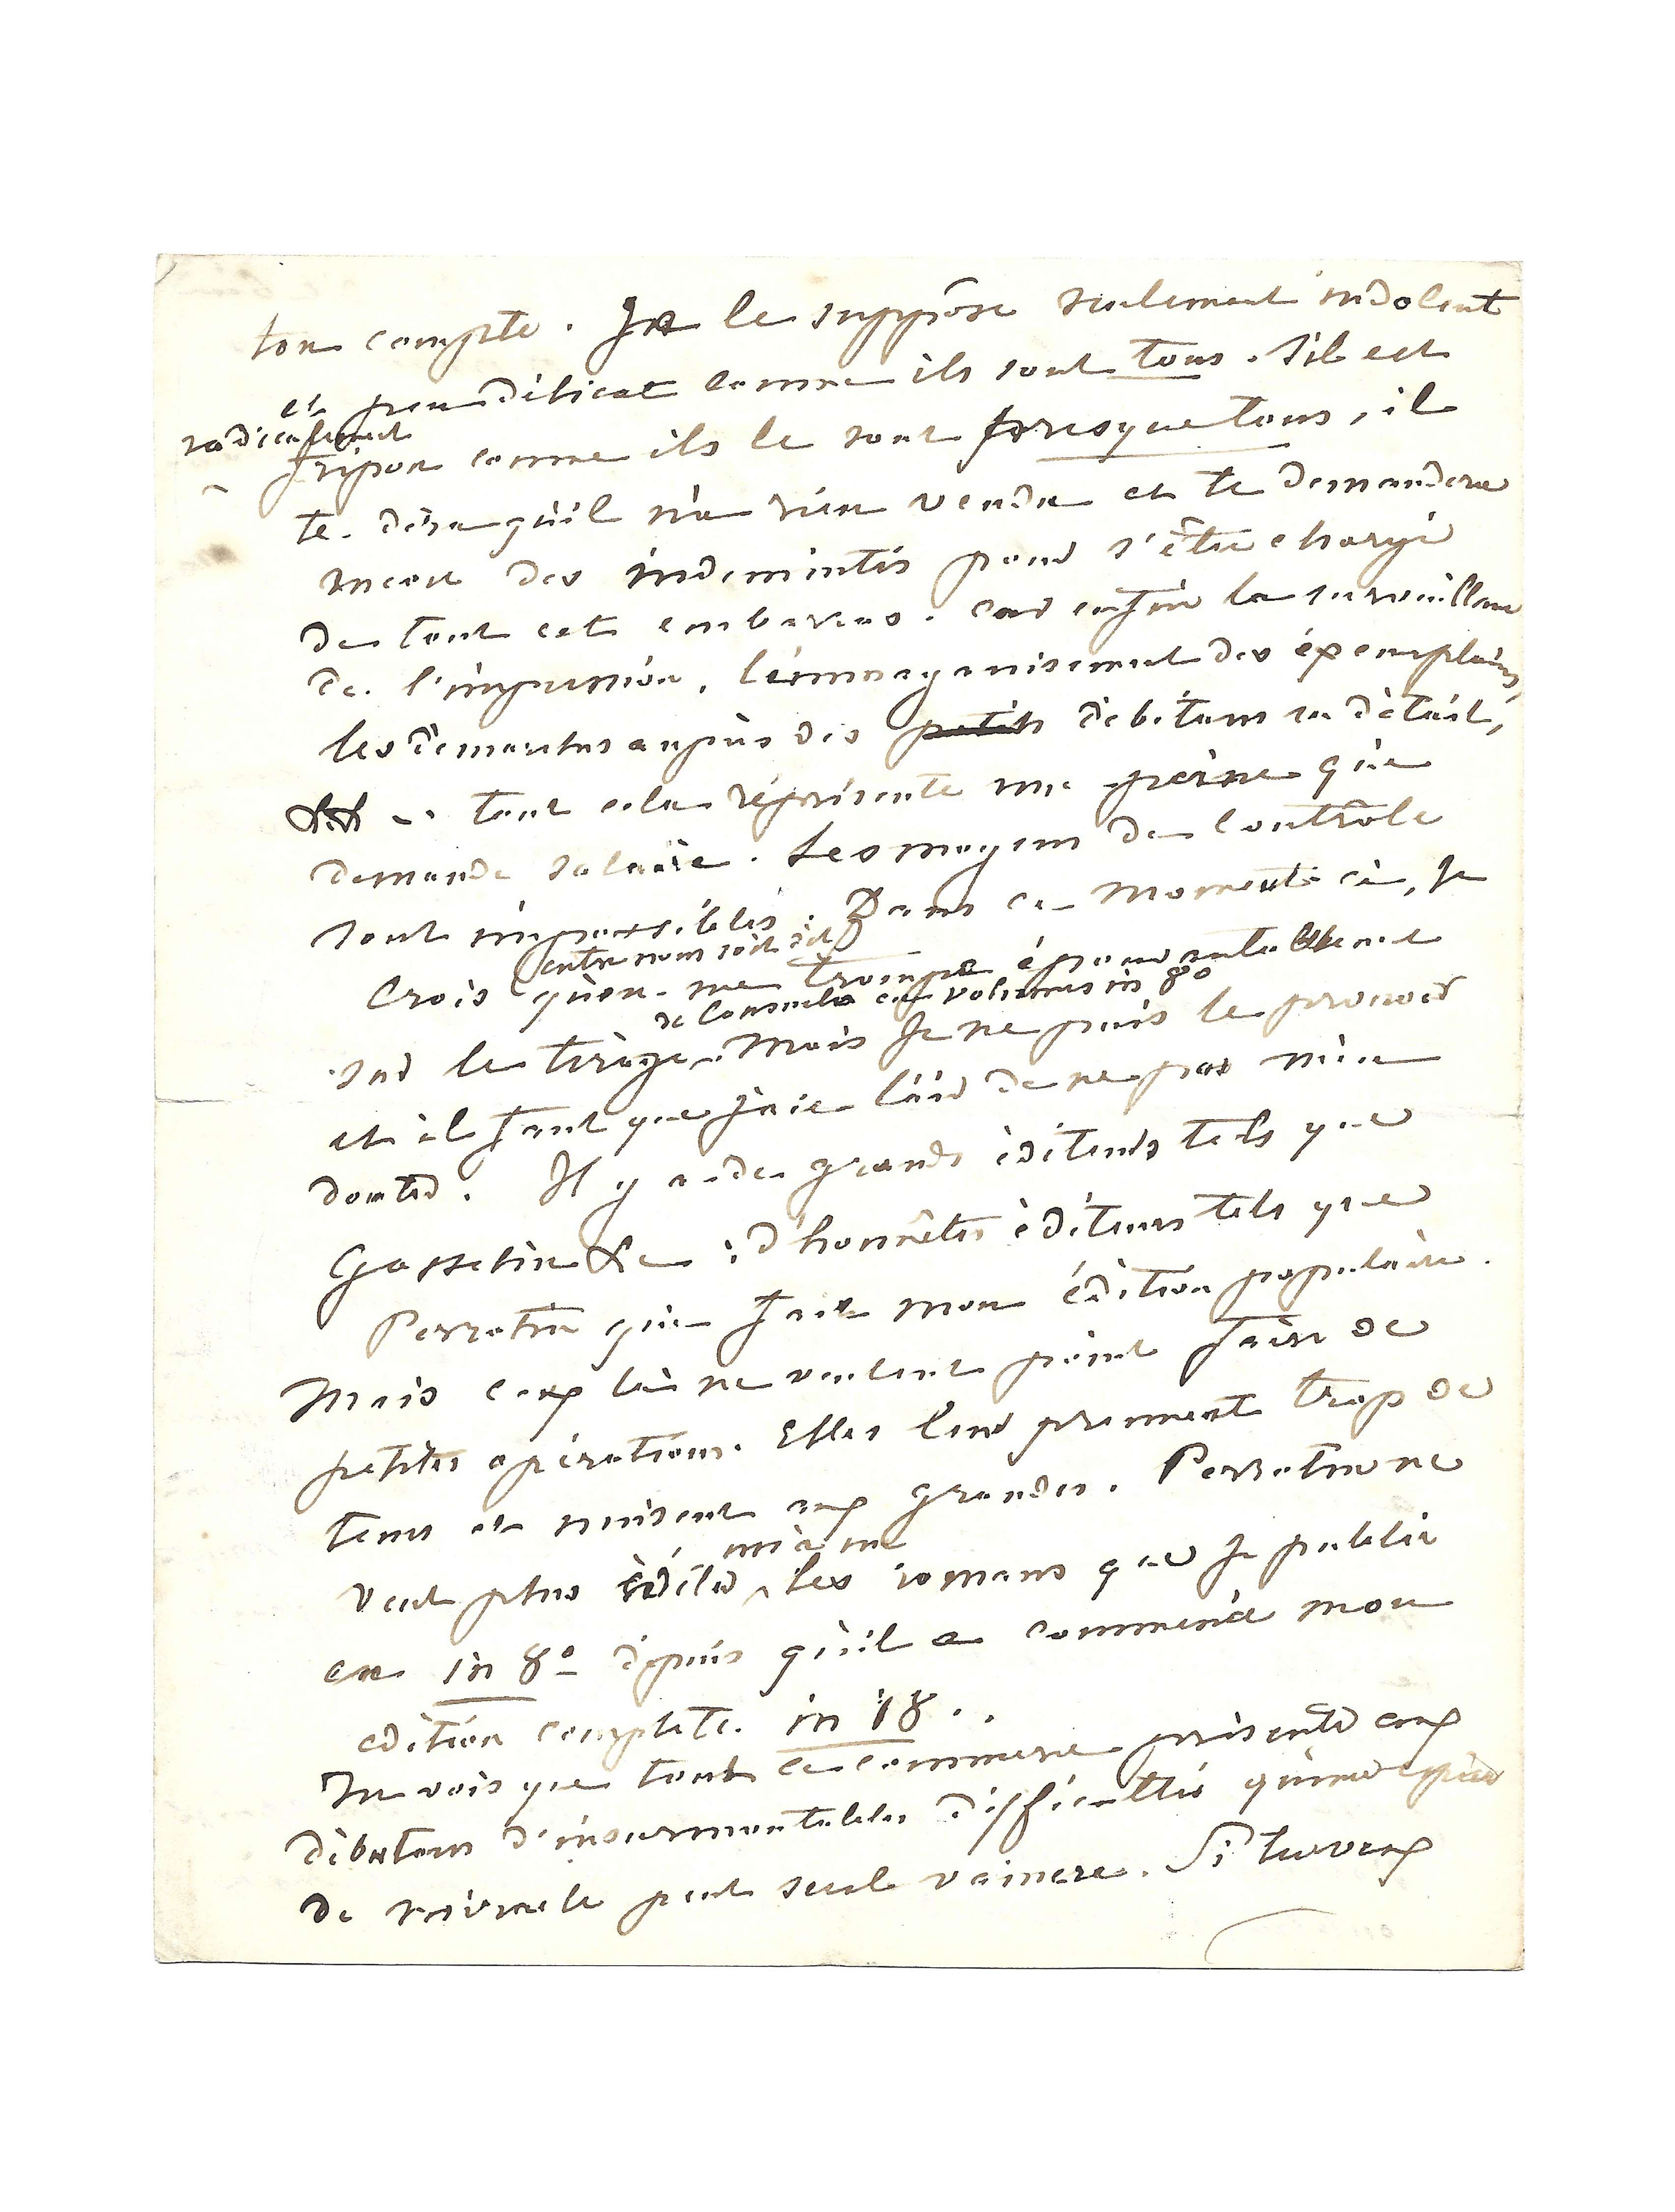 ton compte. Je le suppôse seulement indolent
et peu délicat comme ils sont tous. S'il est
radicalement
fripon comme ils le sont presque tous, il
te dira qu'il n'a rien vendu et te demandera
encor des indemnités pour s'être chargé
de tout cet embarras. Car enfin la surveillance
de l'impression, l'emmaganisement des éxemplaires,
les démarches auprès des petits débitans en détail,
&& .. tout cela réprésente une peine qui
demande salaire. Les moyens de contrôle
sont impossibles. Dans ce moment ci, je
entre nous soit dit
crois qu'on me trompe épouvantablement
de Consuelo en volumes in 8°
sur le tirage. Mais je ne puis le prouver
et il faut que j'aie l'air de ne pas m'en
douter. Il y a de grands éditeurs tels que
Gosselin &c ; d'honnêtes éditeurs tels que
Perrotin qui fait mon édition populaire.
Mais ceux là ne veulent point faire de
petites opérations. Elles leur prennent trop de
tems et nuisent aux grandes. Perrotin ne
veut plus éditer même les romans que je publie
en in 8° depuis qu'il a commencé mon
edition complete in 18..
Tu vois que tout ce commerce présente aux
débutans d'insurmontables difficultés qu'une espèce
de miracle peut seul vaincre. Si tu veux